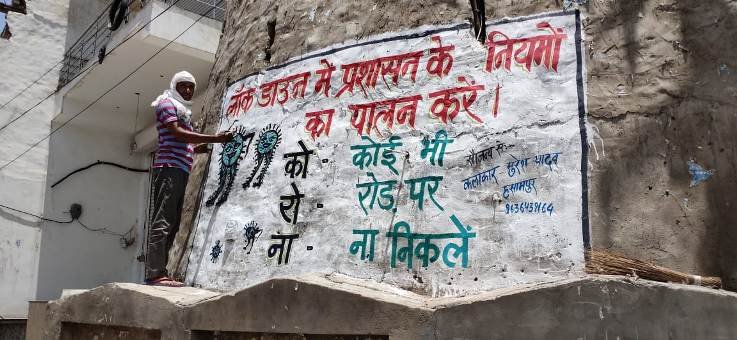 लॉक डाउन में प्रशासन के नियमों
का पालन करें।
को - कोई भी
रो - रोड पर
ना - ना निकलें
सौजन्य से:-
कलाकार सुरेश यादव
हसामपुर